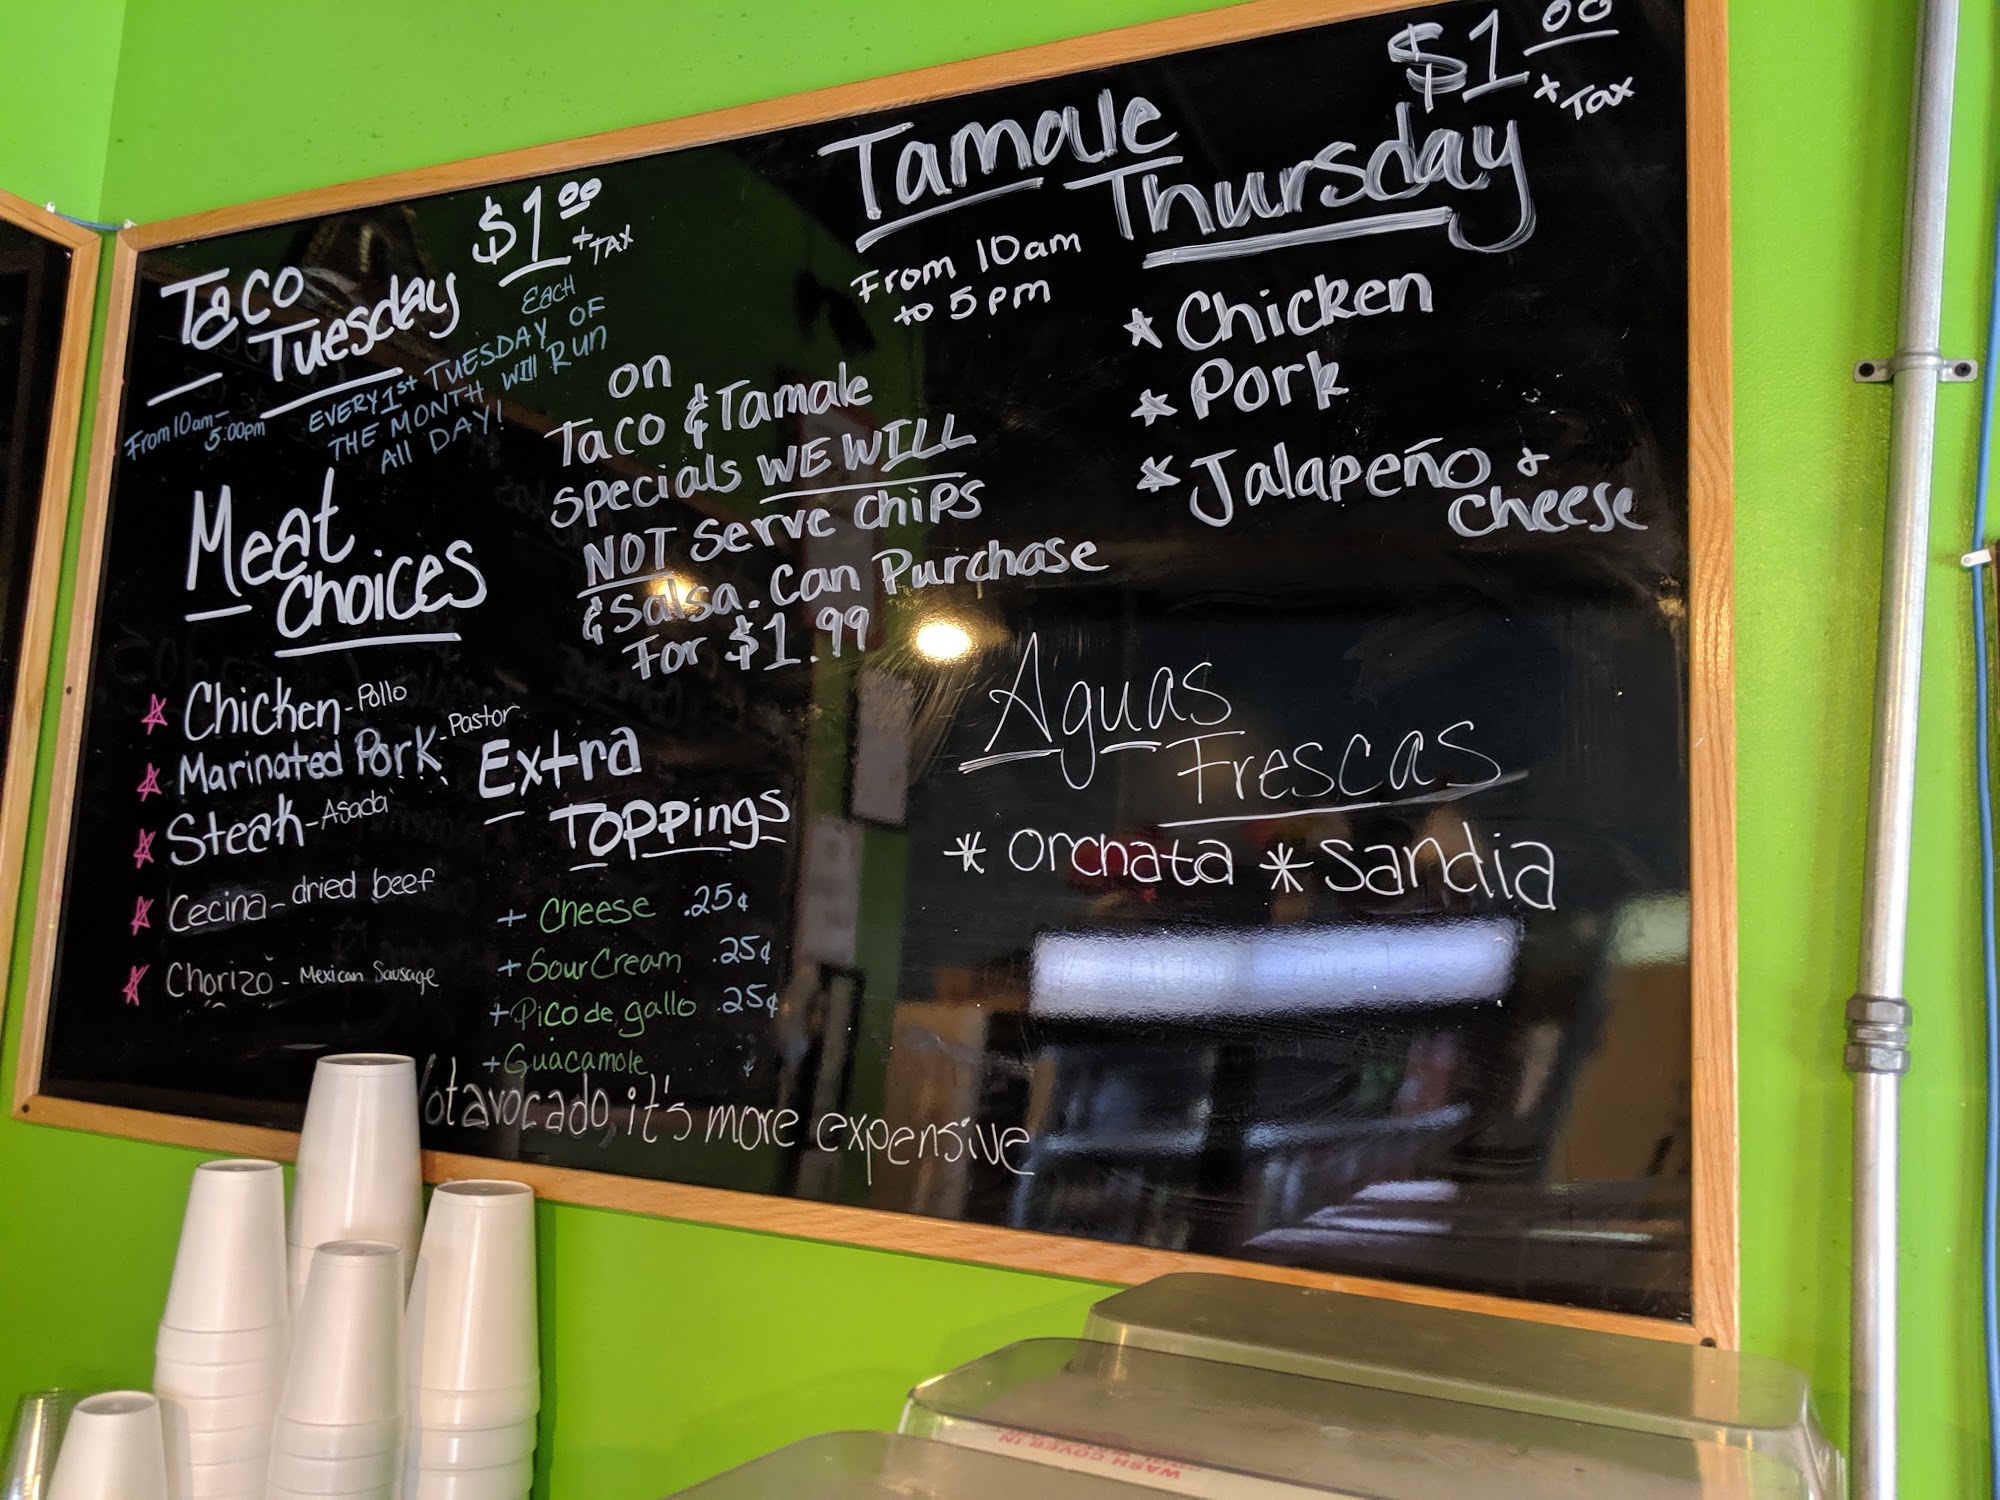 Taco
Tuesday
$1.00
+ TAX
EACH
From 10am-
5:00pm
EVERY 1st TUESDAY OF
THE MONTH Will Run
All DAY!
Meat
Choices
Chicken - Pollo
Marinated Pork - Pastor
Steak - Asada
Cecina - dried beef
Chorizo - Mexican Sausage
on
Taco & Tamale
specials WE WILL
NOT Serve chips
& Salsa. Can Purchase
For $1.99
Extra
Toppings
+ Cheese .25¢
+ Sour Cream .25¢
+ Pico de gallo .25¢
+ Guacamole ¢
avocado, it's more expensive
Tamale
Thursday
$1.00
+ Tax
From 10am
to 5pm
Chicken
Pork
Jalapeño &
cheese
Aguas
Frescas
* orchata * sandia
WASH COVER IN